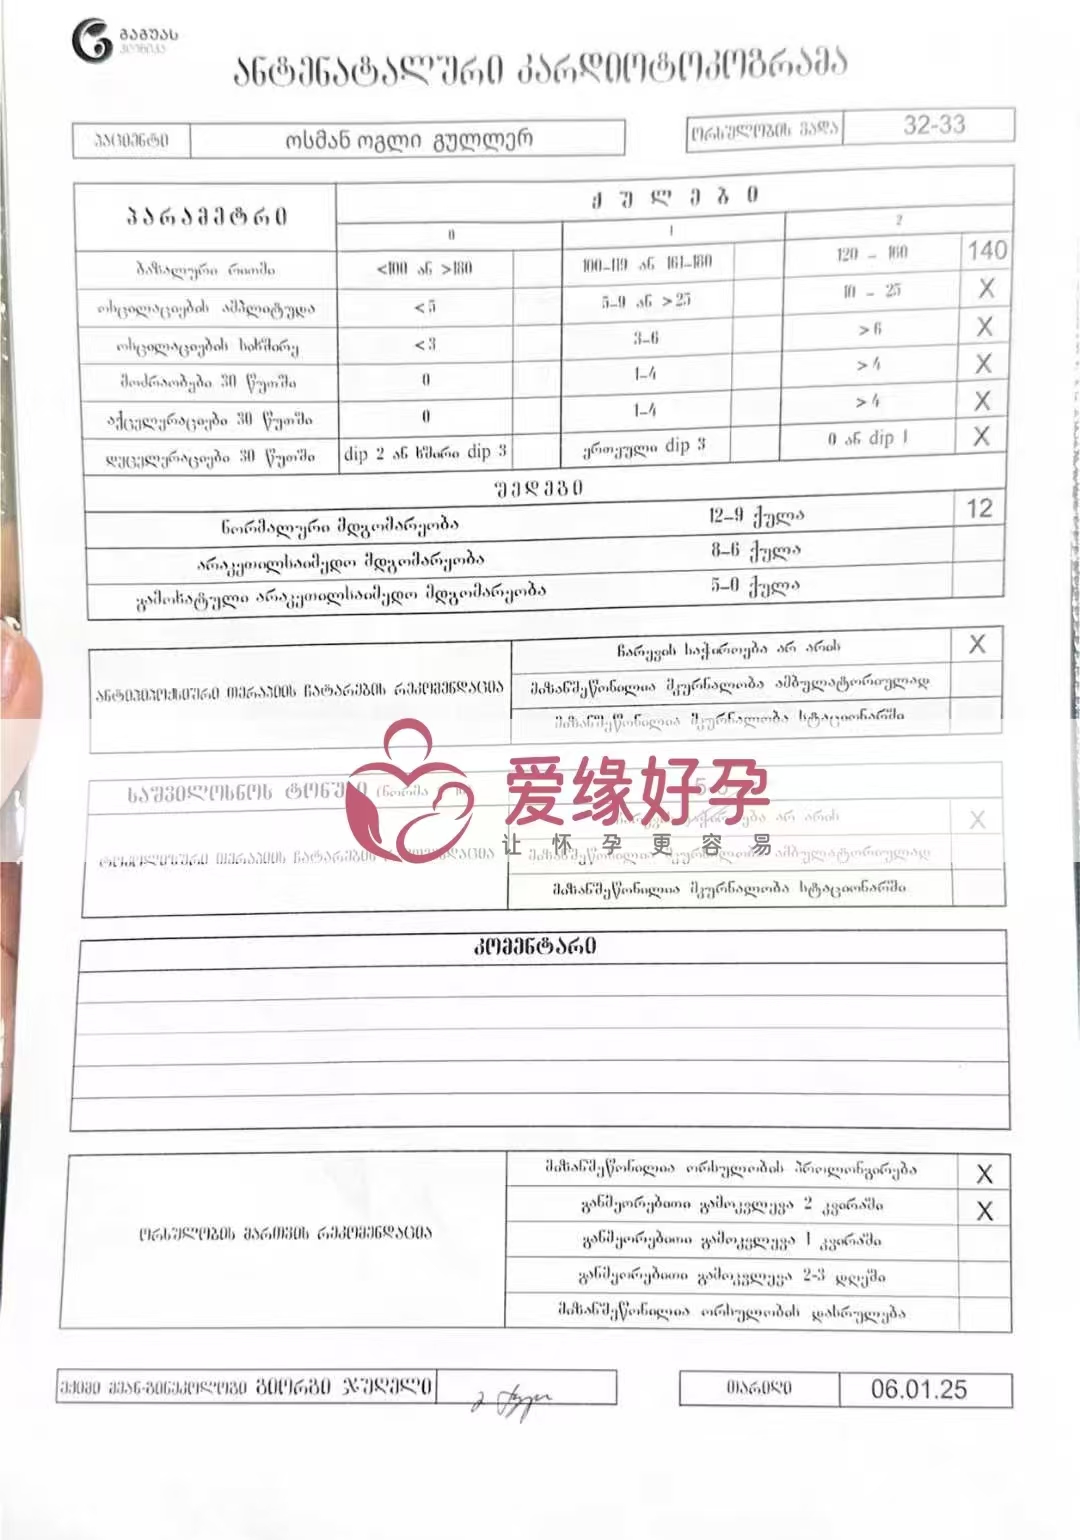 გაგუას
კლინიკა
ანტენატალური კარდიოტოკოგრამა
პაციენტი ოსმან ოგლი გულლერ ორსულობის ვადა 32-33
პარამეტრი ქულები
0 1 2
ბაზალური რითმი <100 ან >180 100-119 ან 161-180 120 - 160 140
ოსცილაციების ამპლიტუდა <5 5-9 ან >25 10 - 25 X
ოსცილაციების სიხშირე <3 3-6 >6 X
მოძრაობები 30 წუთში 0 1-4 >4 X
აქცელერაციები 30 წუთში 0 1-4 >4 X
დეცელერაციები 30 წუთში dip 2 ან ხშირი dip 3 ერთეული dip 3 0 ან dip 1 X
შედეგი
ნორმალური მდგომარეობა 12-9 ქულა 12
არაკეთილსაიმედო მდგომარეობა 8-6 ქულა
გამოხატული არაკეთილსაიმედო მდგომარეობა 5-0 ქულა
ანტიჰიპოქსიური თერაპიის ჩატარების რეკომენდაცია
ჩარევის საჭიროება არ არის X
მიზანშეწონილია მკურნალობა ამბულატორიულად
მიზანშეწონილია მკურნალობა სტაციონარში
საშვილოსნოს ტონუსი (ნორმა
爱缘好孕
让怀孕更容易
საჭიროება არ არის X
ტოკოლიზური თერაპიის ჩატარების რეკომენდაცია
მიზანშეწონილია მკურნალობა ამბულატორიულად
მიზანშეწონილია მკურნალობა სტაციონარში
კომენტარი
ორსულობის მართვის რეკომენდაცია
მიზანშეწონილია ორსულობის პროლონგირება X
განმეორებითი გამოკვლევა 2 კვირაში X
განმეორებითი გამოკვლევა 1 კვირაში
განმეორებითი გამოკვლევა 2-3 დღეში
მიზანშეწონილია ორსულობის დასრულება
ექიმი მეან-გინეკოლოგი გიორგი ჯუღელი თარიღი 06.01.25